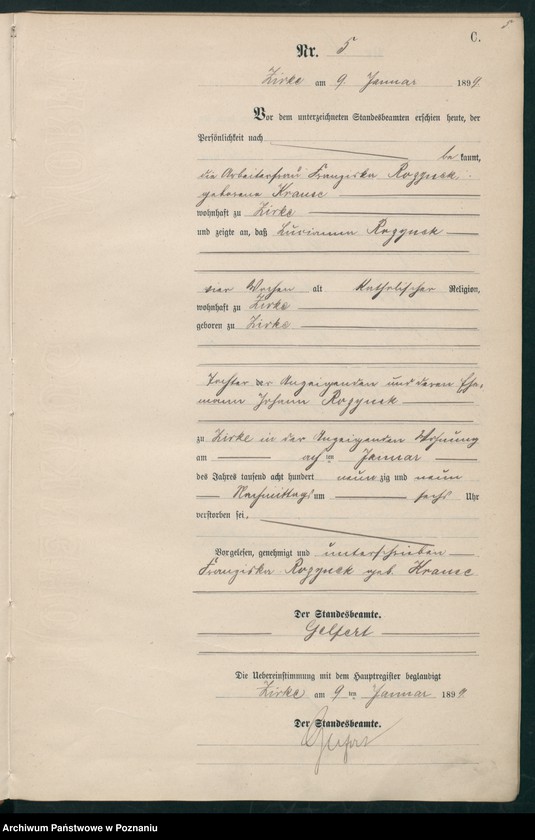 5
C.
Nr. 5
Zirke am 9 Januar 1899.
Vor dem unterzeichneten Standesbeamten erschien heute, der
Persönlichkeit nach
be kannt,
die Arbeiterfrau Franziska Rozynek
geborene Krause
wohnhaft zu Zirke
und zeigte an, daß Rozynek
vier Wochen alt katholischer Religion,
wohnhaft zu Zirke
geboren zu Zirke
Tochter der Anzeigenden und deren Ehe-
mann Johann Rozynek
zu Zirke in der Anzeigenden Wohnung
am acht ten Januar
des Jahres tausend acht hundert neun zig und neun
Nachmittags um sechs Uhr
verstorben sei.
Vorgelesen, genehmigt und unterschrieben
Franziska Rozynek geb. Krause
Der Standesbeamte.
Gelfert
Die Uebereinstimmung mit dem Hauptregister beglaubigt
Zirke am 9 ten Januar 1899.
Der Standesbeamte.
Gelfert
Archiwum Państwowe w Poznaniu